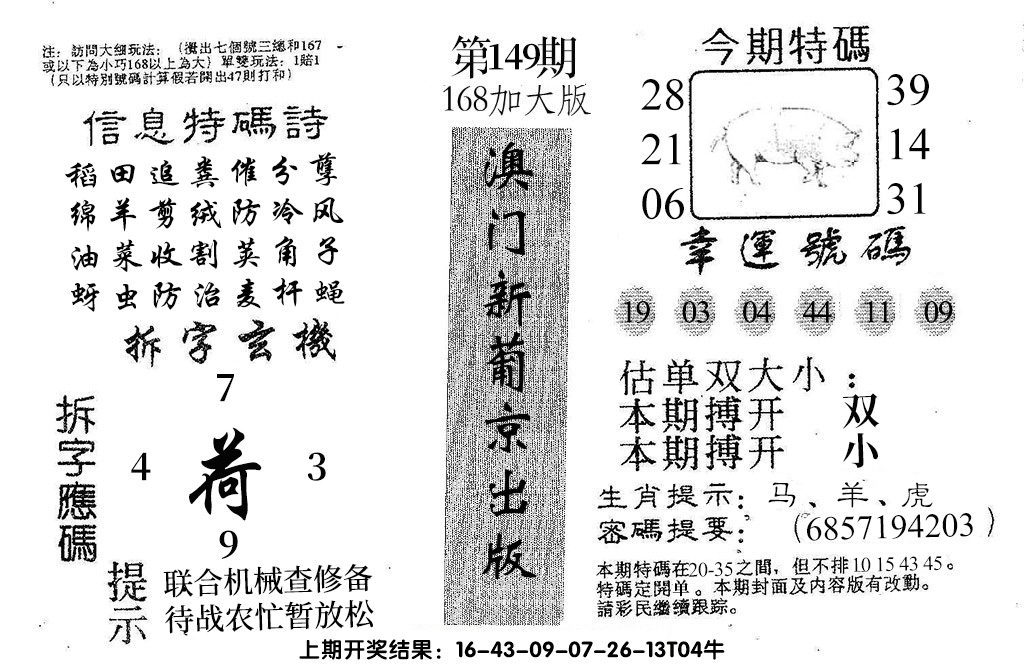 注：訪問大細玩法：（攪出七個號三總和167
或以下為小巧168以上為大）單雙玩法：1賠1
（只以特別號碼計算假若開出47則打和）
信息特碼詩
稻田追粪催分孽
绵羊剪绒防冷风
油菜收割荚角子
蚜虫防治麦杆蝇
拆字玄機
拆字應碼
7
4 荷 3
9
提示
联合机械查修备
待战农忙暂放松
第149期
168加大版
澳门新葡京出版
今期特碼
28 39
21 14
06 31
幸運號碼
19 03 04 44 11 09
估单双大小：
本期搏开 双
本期搏开 小
生肖提示：马、羊、虎
密碼提要：（6857194203）
本期特碼在20-35之間，但不排10 15 43 45。
特碼定開单。本期封面及内容版有改動。
請彩民繼續跟踪。
上期开奖结果：16-43-09-07-26-13T04牛